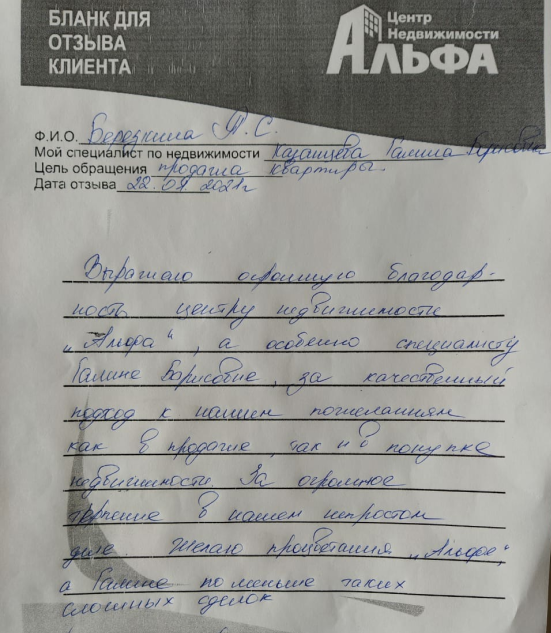 БЛАНК ДЛЯ
ОТЗЫВА
КЛИЕНТА
Центр
Недвижимости
АЛЬФА
Ф.И.О. Березкина Т. С.
Мой специалист по недвижимости Казанцева Галина Борисовна
Цель обращения продажа квартиры.
Дата отзыва 22.09 2021г
Выражаю огромную благодар-
ность центру недвижимости
„Альфа“, а особенно специалисту
Галине Борисовне, за качественный
подход к нашим пожеланиям
как в продаже, так и в покупке
недвижимости. За огромное
терпение в нашем непростом
деле. Желаю процветания „Альфе“,
а Галине по меньше таких
сложных сделок